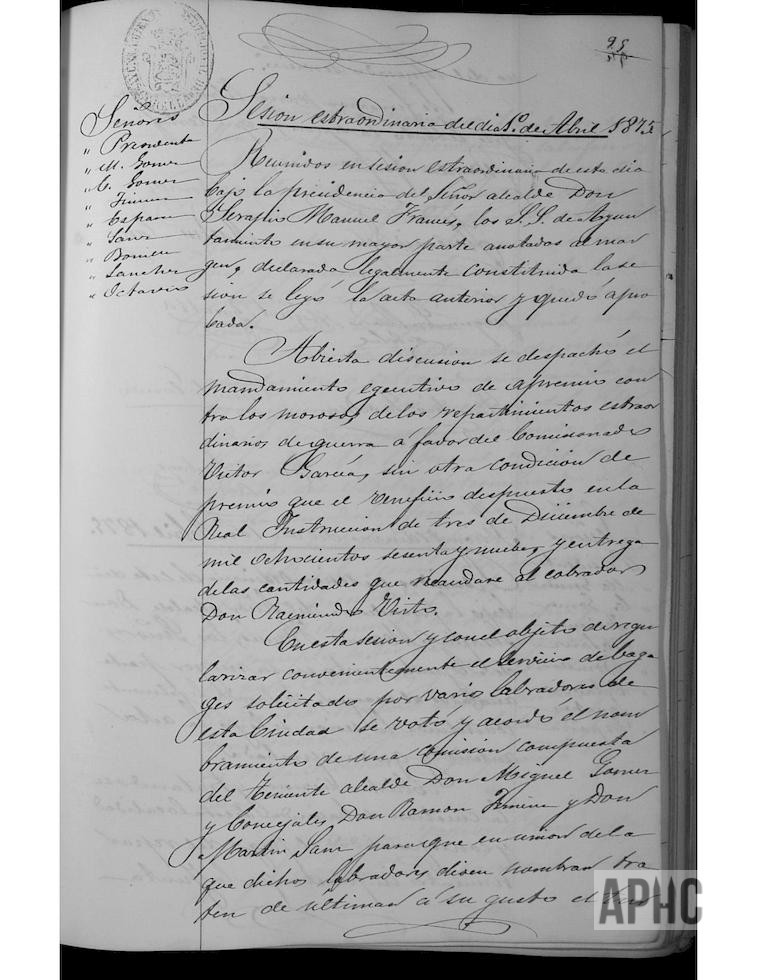 95
Sesion estraordinaria del dia 1º de Abril 1875
Señores
„ Presidente
„ M. Gomez
„ C. Gomez
„ Jimenez
„ España
„ Sanz
„ Romeu
„ Sanchez
„ Octavio
Reunidos en sesion estraordinaria de este dia
bajo la presidencia del Señor alcalde Don
Serafio Manuel Francés, los S.S. de Ayun
tamiento en su mayor parte anotados al mar
gen, declarada legalmente constituida la se
sion se leyó la acta anterior y quedó apro
bada.
Abierta discusion se despachó el
mandamiento egecutivo de apremio con
tra los morosos de los repartimientos estraor
dinarios de guerra a favor del Comisionado
Victor García, sin otra condicion de
premio que el beneficio despuesto en la
Real Instruccion de tres de Diciembre de
mil ochocientos sesenta y nueve, y entrega
de las cantidades que recaudare al cobrador
Don Raimundo Visto.
En esta sesion y con el objeto de regu
larizar convenientemente el servicio de baga
ges solicitado por varios labradores de
esta Ciudad se votó y acordó el nom
bramiento de una comision compuesta
del teniente alcalde Don Miguel Gomez
y Concejales Don Ramon Jimenez y Don
Martin Sanz para que en union de la
que dichos labradores dicen nombran tra
ten de ultimar á su gusto el
APHC